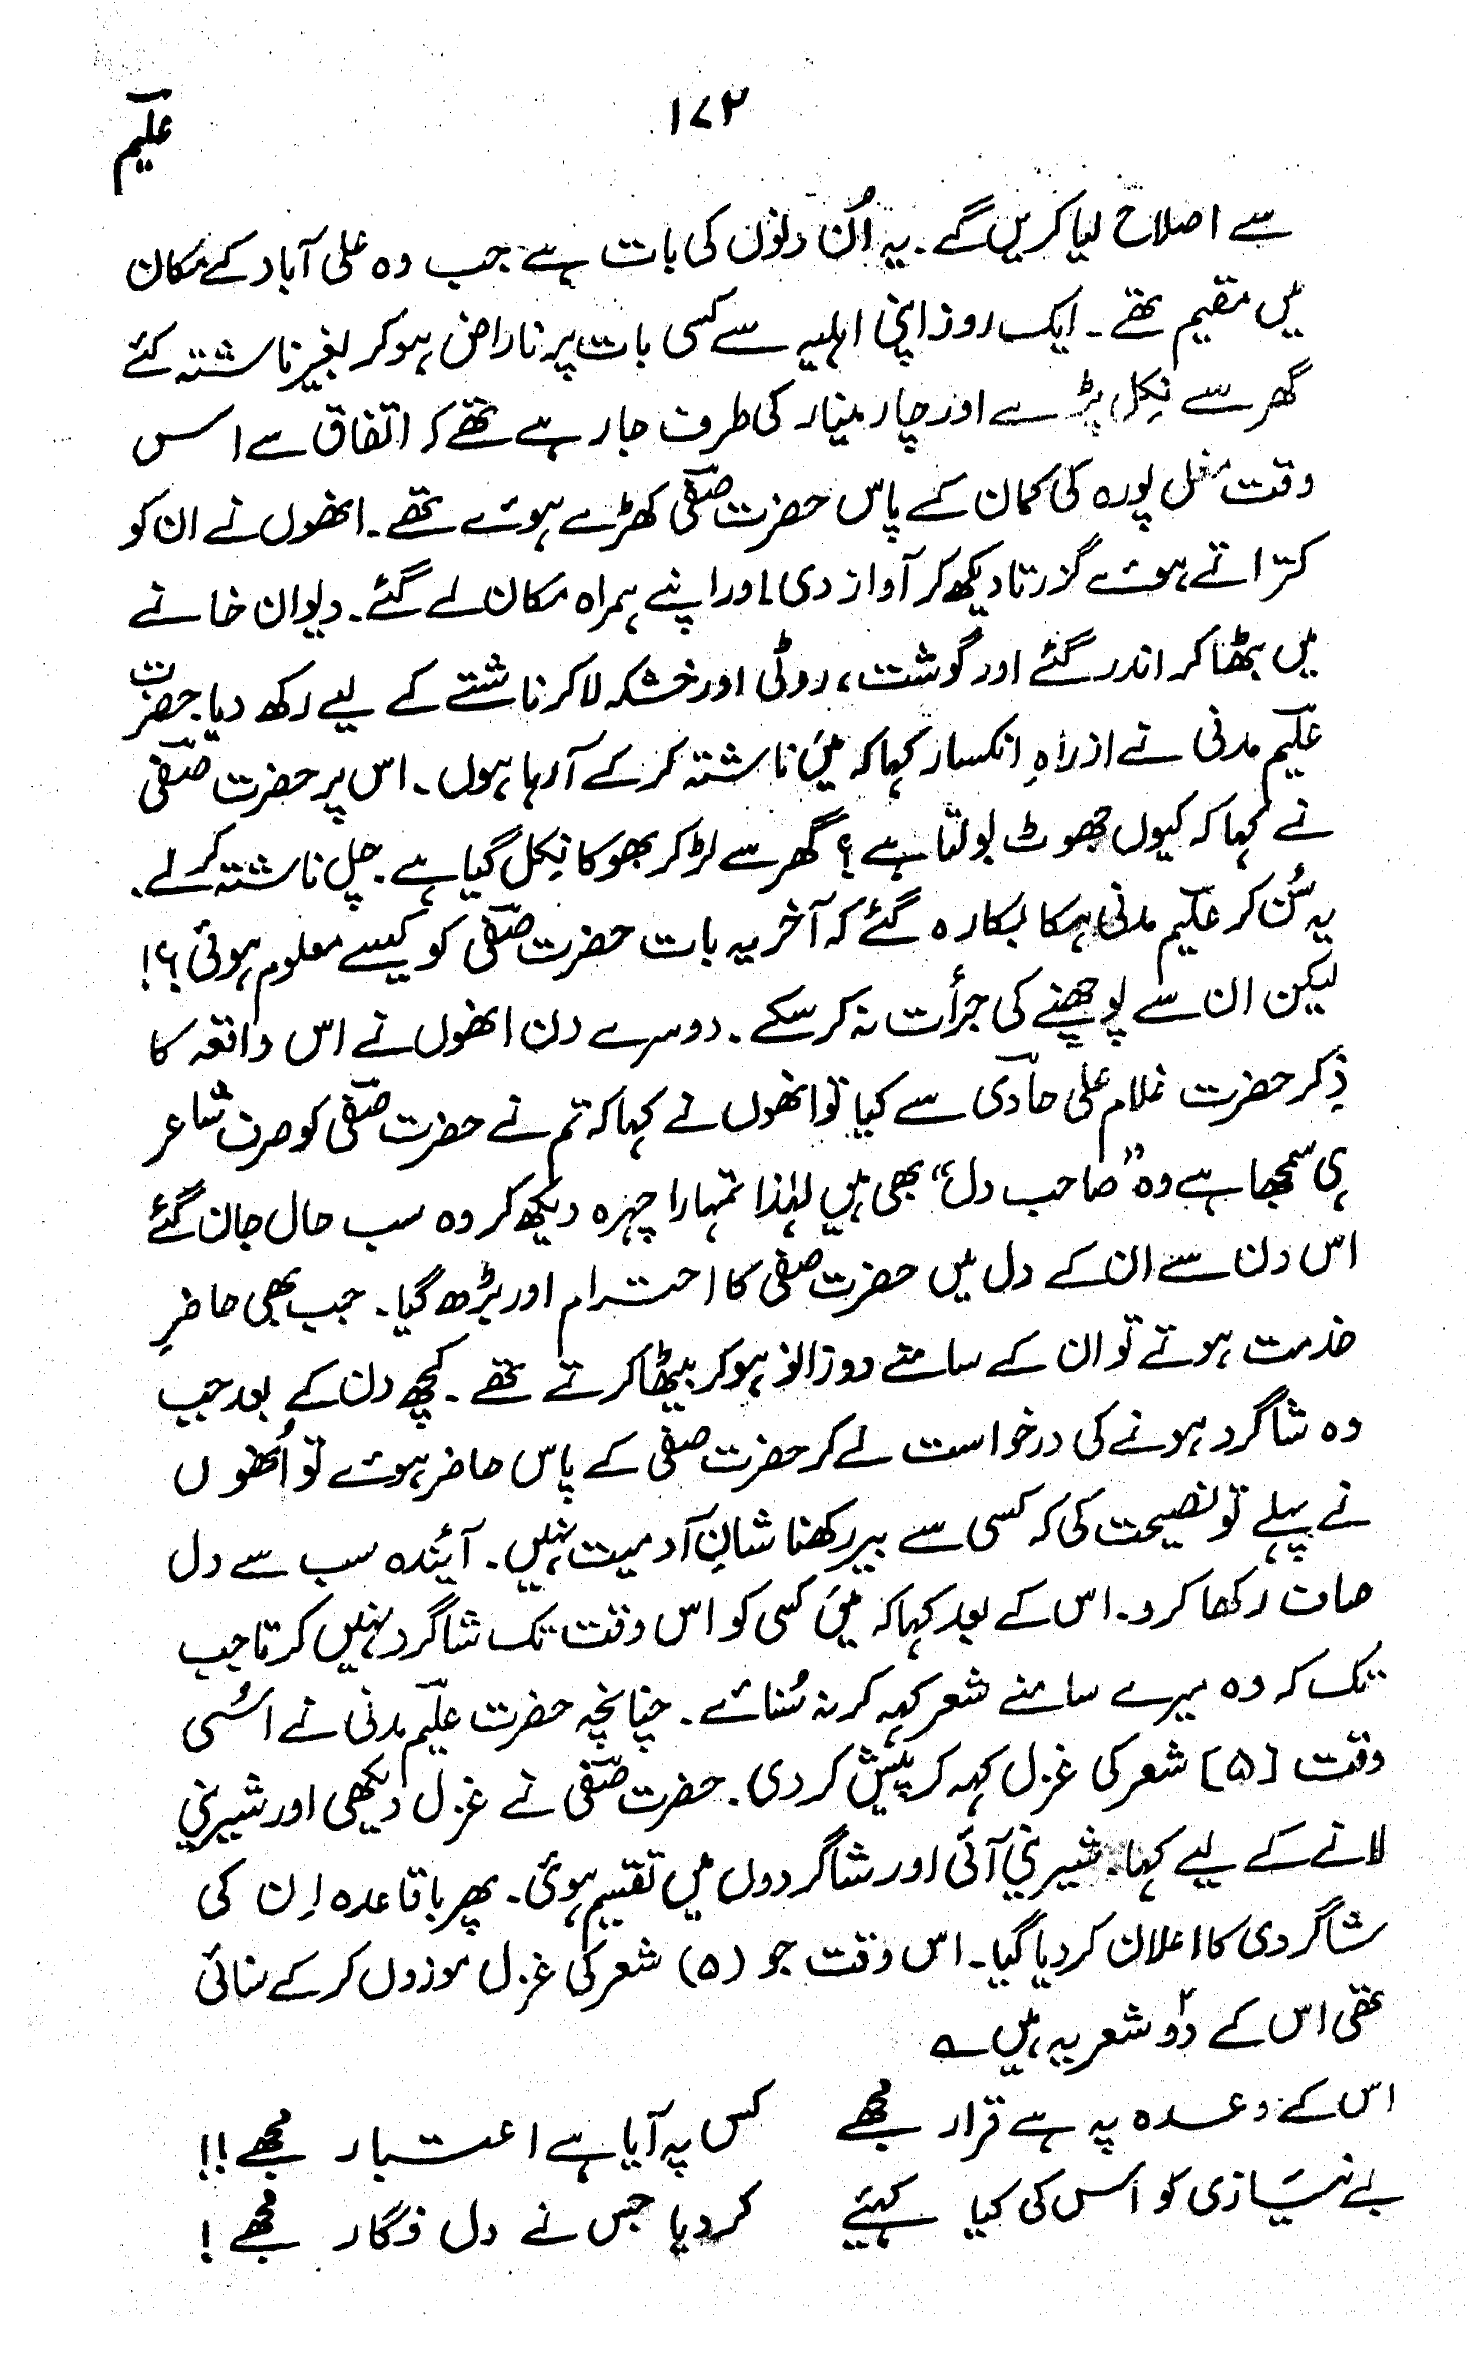 ۱۷۲
علیم
سے اصلاح لیا کریں گے۔ یہ اُن دنوں کی بات ہے جب وہ علی آباد کے مکان
میں مقیم تھے۔ ایک روز اپنی اہلیہ سے کسی بات پر ناراض ہو کر بغیر ناشتہ کئے
گھر سے نِکل پڑے اور چار مینار کی طرف جا رہے تھے کہ اتفاق سے اس
وقت مغل پورہ کی کمان کے پاس حضرت صفی کھڑے ہوئے تھے۔ انھوں نے ان کو
کترّاتے ہوئے گزرتا دیکھ کر آواز دی اور اپنے ہمراہ مکان لے گئے۔ دیوان خانے
میں بٹھا کر اندر گئے اور گوشت، روٹی اور خشکہ لا کر ناشتے کے لیے رکھ دیا۔ حضرت
علیم مدنی نے ازراہِ انکسار کہا کہ میں ناشتہ کر کے آ رہا ہوں۔ اس پر حضرت صفی
نے کہا کہ کیوں جھوٹ بولتا ہے؟ گھر سے لڑ کر بھوکا نِکل گیا ہے۔ چل ناشتہ کر لے۔
یہ سُن کر علیم مدنی ہکا بکا رہ گئے کہ آخر یہ بات حضرت صفی کو کیسے معلوم ہوئی؟!
لیکن ان سے پوچھنے کی جرأت نہ کر سکے۔ دوسرے دن انھوں نے اس واقعہ کا
ذِکر حضرت غلام علی حادی سے کیا تو انھوں نے کہا کہ تم نے حضرت صفی کو صرف شاعر
ہی سمجھا ہے وہ "صاحب دل" بھی ہیں لہٰذا تمہارا چہرہ دیکھ کر وہ سب حال جان گئے
اس دن سے ان کے دل میں حضرت صفی کا احترام اور بڑھ گیا۔ جب بھی حاضرِ
خدمت ہوتے تو ان کے سامنے دو زانو ہو کر بیٹھا کرتے تھے۔ کچھ دن کے بعد جب
وہ شاگرد ہونے کی درخواست لے کر حضرت صفی کے پاس حاضر ہوئے تو اُنھوں
نے پہلے تو نصیحت کی کہ کسی سے بیر رکھنا شانِ آدمیت نہیں۔ آئندہ سب سے دل
صاف رکھا کرو۔ اس کے بعد کہا کہ میں کسی کو اس وقت تک شاگرد نہیں کرتا جب
تک کہ وہ میرے سامنے شعر کہہ کر نہ سُنائے۔ چنانچہ حضرت علیم مدنی نے اسُی
وقت [۵] شعر کی غزل کہہ کر پیش کر دی۔ حضرت صفی نے غزل دیکھی اور شیرینی
لانے کے لیے کہا۔ شیرینی آئی اور شاگردوں میں تقسیم ہوئی۔ پھر باقاعدہ اِن کی
شاگردی کا اعلان کر دیا گیا۔ اس وقت جو (۵) شعر کی غزل موزوں کر کے سنائی
تھی اس کے دو۲ شعر یہ ہیں ؎
اس کے وعدہ پہ ہے قرار مجھے کس پہ آیا ہے اعتبار مجھے!!
بے نیازی کو اُس کی کیا کہیئے کر دیا جس نے دل فگار مجھے!